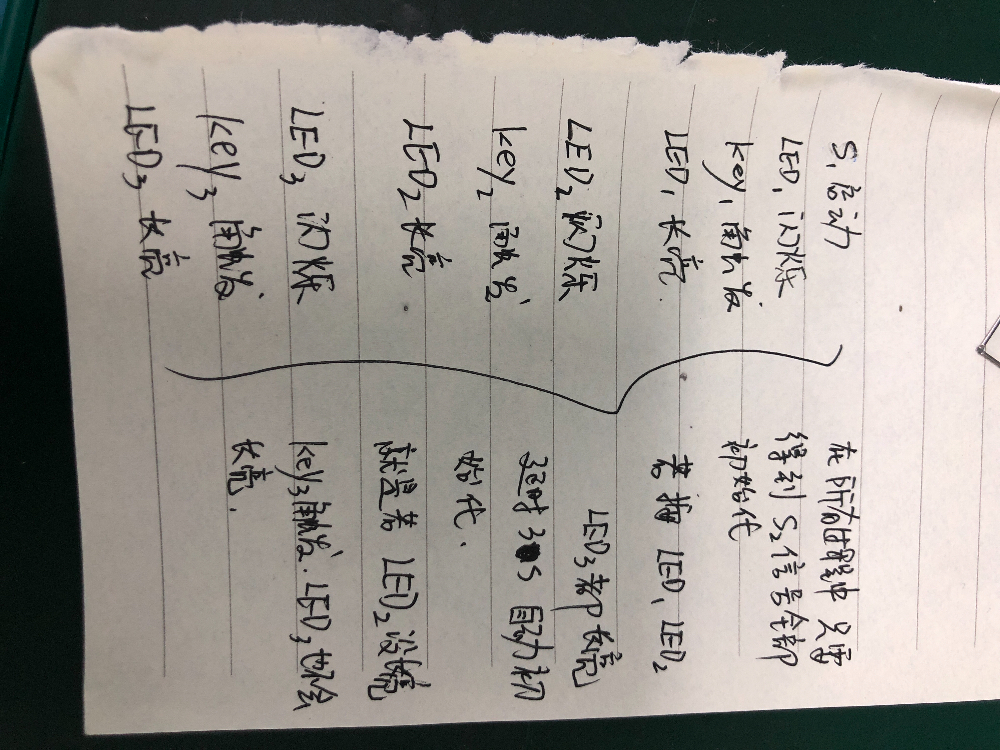 S₁启动
LED₁闪烁
key₁触发
LED₁长亮
LED₂闪烁
key₂触发
LED₂长亮
LED₃闪烁
key₃触发
LED₃长亮
在所有过程中只需
得到S₂信号全部
初始化
若 LED₁ LED₂
LED₃都长亮
延时3 S自动初
始化.
就是若LED₂没长亮
key₃触发.LED₃也不会
长亮.